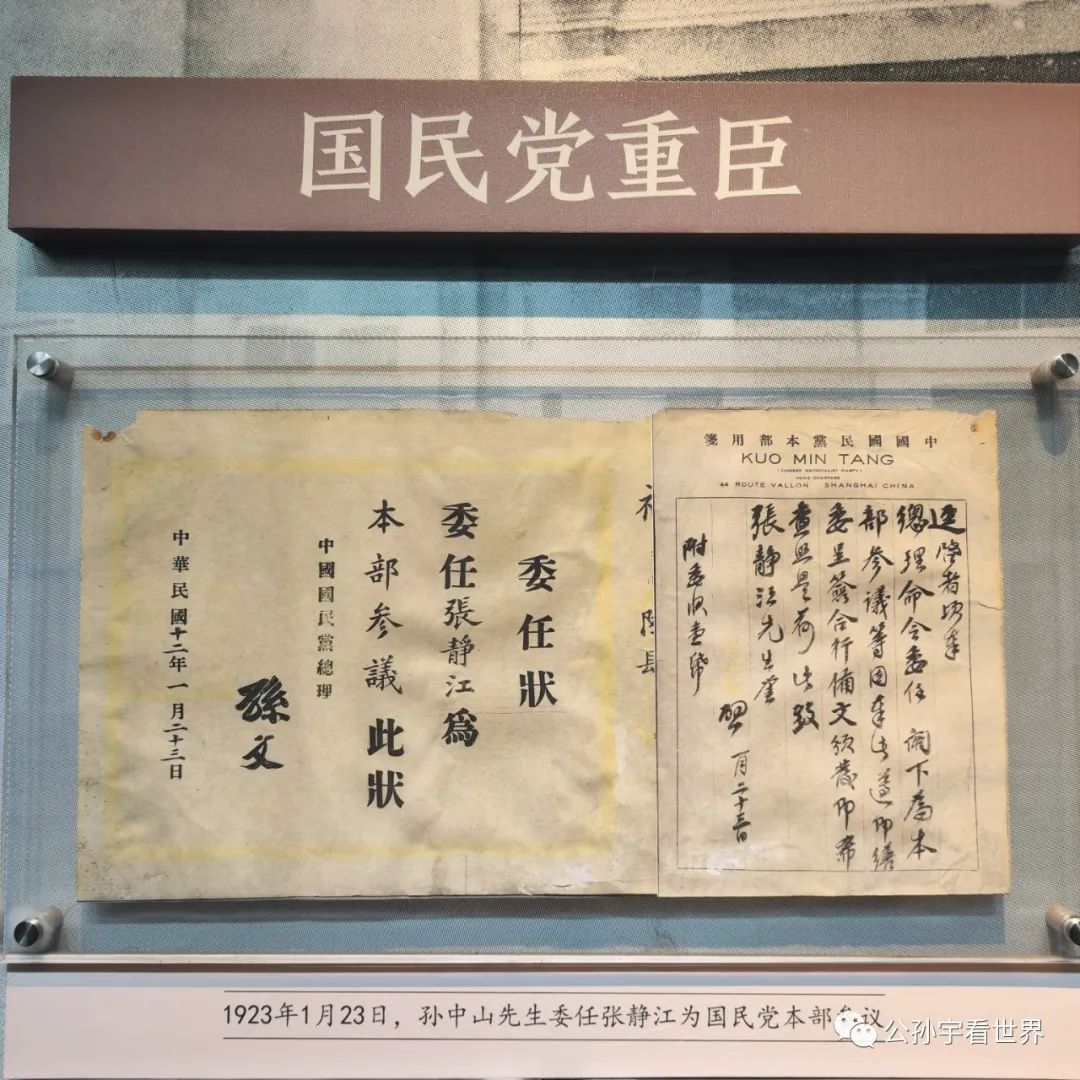 国民党重臣
委任狀
委任張靜江爲
本部參議此狀
中國國民黨總理
孫文
中華民國十二年一月二十三日
中國國民黨本部用箋
KUO MIN TANG
(CHINESE NATIONALIST PARTY)
HEAD QUARTERS
44 ROUTE VALLON SHANGHAI CHINA
逕啓者頃奉
總理命令委任 閣下爲本
部參議等因奉此遵即繕
委呈簽合行備文須發即希
查照是荷 此致
張靜江先生鑒
一月二十三日
附委狀壹
1923年1月23日，孙中山先生委任张静江为国民党本部参议
公孙宇看世界